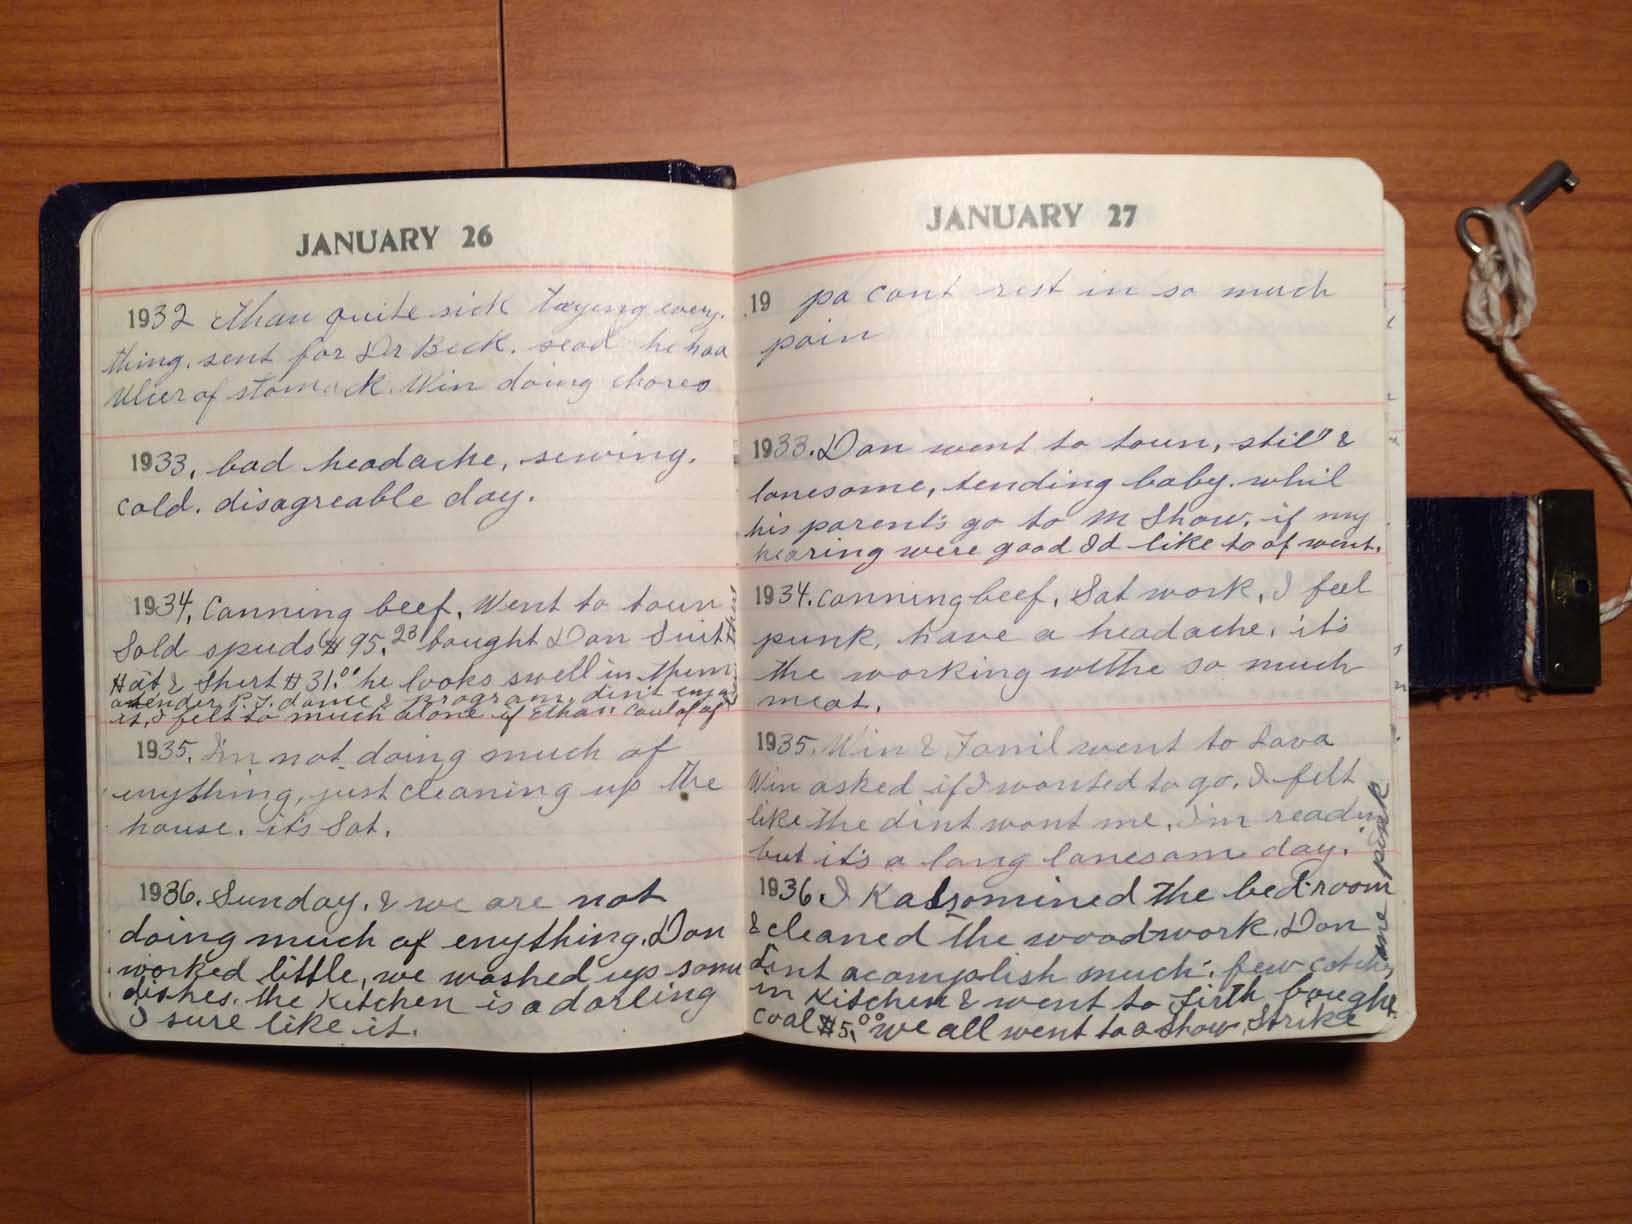 JANUARY 26
1932 Ethan quite sick trying every.
thing. sent for Dr Beck. sead he had
Ulser of stomack. Win doing chores
1933, bad headache, sewing.
cold. disagreable day.
1934, Canning beef, Went to town
Sold spuds $95.23 bought Don Suit
Hat & Shert $31.00 he looks swell in them
attender P.T. dance & program, din't enjoy
it, I felt so much alone if Ethan could of of
there
1935. I'm not doing much of
enything, just cleaning up the
house. it's Sat.
1936. Sunday. & we are not
doing much of enything. Don
worked little, we washed up some
dishes. the kitchen is a darling
I sure like it.
JANUARY 27
19 pa cant rest in so much
pain
1933. Don went to town, still &
lonesome, tending baby. whil
his parents go to M Show. if my
hearing were good I'd like to of went.
1934. canning beef, Sat work, I feel
punk, have a headache, it's
the working withe so much
meat.
1935. Win & Famil went to Lava
Win asked if I wanted to go. I felt
like the dint want me, I'm readin
but it's a long lonesome day.
1936 I Kalsomined the bed-room
& cleaned the woodwork. Don
dint acomplish much. few
in Kitchen & went to Firth bought
coal $5.00 we all went to a show, Strike
me pink